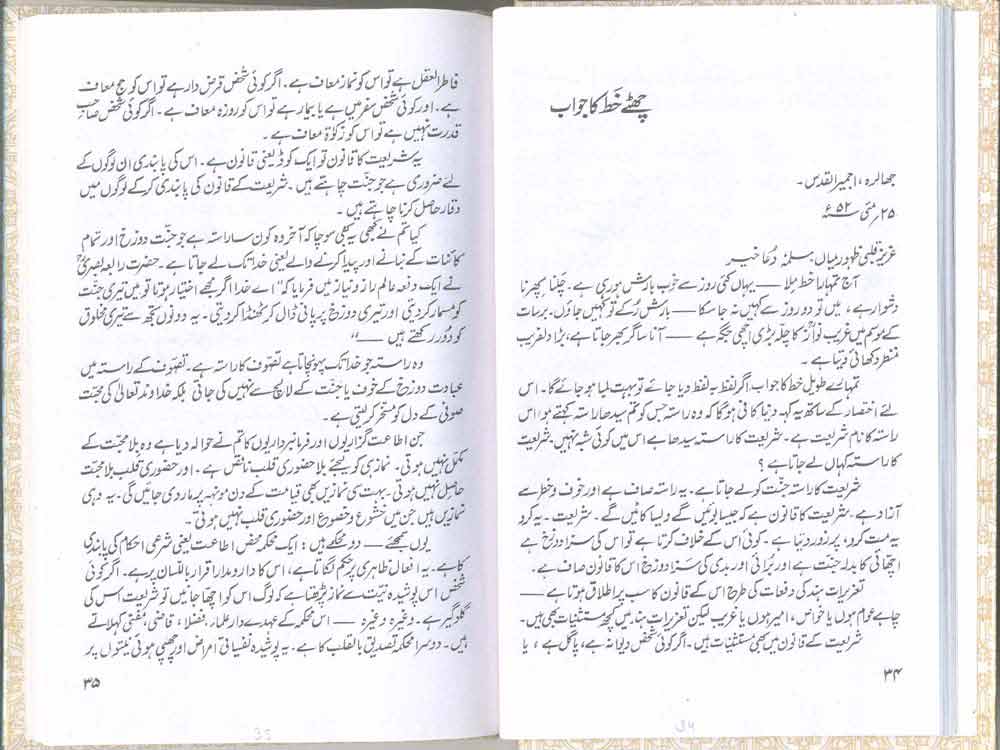 چھٹے خط کا جواب
جھالرہ، اجمیر القدس۔
۲۵ مئی سنہ ۵۲ء
عزیز قلبی ظہور میاں سلمہٗ دُعا خیر
آج تمہارا خط مِلا — یہاں کئی روز سے خوب بارش ہو رہی ہے۔ چلنا پھرنا
دشوار ہے، میں تو دو روز سے کہیں نہ جا سکا — بارش رُکے تو کہیں جاؤں۔ برسات
کے موسم میں غریب نوازؒ کا چِلّہ بڑی اچھی جگہ ہے — آنا ساگر بھر جاتا ہے، بڑا دلفریب
منظر دکھائی دیتا ہے۔
تمہارے طویل خط کا جواب اگر لفظ بہ لفظ دیا جائے تو بہت لمبا ہو جائے گا۔ اس
لئے اختصار کے ساتھ یہ کہہ دینا کافی ہوگا کہ وہ راستہ جس کو تم سیدھا راستہ کہتے ہو اس
راستہ کا نام شریعت ہے۔ شریعت کا راستہ سیدھا ہے اس میں کوئی شبہ نہیں۔ شریعت
کا راستہ کہاں لے جاتا ہے؟
شریعت کا راستہ جنّت کو لے جاتا ہے۔ یہ راستہ صاف ہے اور خوف و خطر سے
آزاد ہے۔ شریعت کا قانون ہے کہ جیسا بوئیں گے ویسا کاٹیں گے۔ شریعت۔ یہ کرو
یہ مت کرو، پر زور دیتا ہے۔ کوئی اس کے خلاف کرتا ہے تو اس کی سزا دوزخ ہے
اچھائی کا بدلہ جنّت ہے اور بُرائی اور بدی کی سزا دوزخ اس کا قانون صاف ہے۔
تعزیرات ہند کی دفعات کی طرح اس کے قانون کا سب پر اطلاق ہوتا ہے —
چاہے عوام ہوں یا خواص، امیر ہوں یا غریب لیکن تعزیرات ہند میں کچھ مستثنیات بھی ہیں۔
شریعت کے قانون میں بھی مستثنیات ہیں۔ اگر کوئی شخص دیوانہ ہے، پاگل ہے، یا
۳۴
فاطر العقل ہے تو اس کو نماز معاف ہے۔ اگر کوئی شخص قرض دار ہے تو اس کو حج معاف
ہے۔ اور کوئی شخص سفر میں ہے یا بیمار ہے تو اس کو روزہ معاف ہے۔ اگر کوئی شخص صاحبِ
قدرت نہیں ہے تو اس کو زکوٰۃ معاف ہے۔
یہ شریعت کا قانون تو ایک کوڈ یعنی قانون ہے۔ اس کی پابندی ان لوگوں کے
لئے ضروری ہے جو جنّت چاہتے ہیں۔ شریعت کے قانون کی پابندی کر کے لوگوں میں
وقار حاصل کرنا چاہتے ہیں۔
کیا تم نے کبھی یہ بھی سوچا کہ آخر وہ کون سا راستہ ہے جو جنّت دوزخ اور تمام
کائنات کے بنانے اور پیدا کرنے والے یعنی خدا تک لے جاتا ہے۔ حضرت رابعہ بصریؒ
نے ایک دفعہ عالم راز و نیاز میں فرمایا کہ "اے خدا اگر مجھے اختیار ہوتا تو میں تیری جنّت
کو مسمار کر دیتی اور تیری دوزخ پر پانی ڈال کر ٹھنڈا کر دیتی۔ یہ دونوں تجھ سے تیری مخلوق
کو دُور رکھتے ہیں —"
وہ راستہ جو خدا تک پہونچاتا ہے تصوّف کا راستہ ہے۔ تصوّف کے راستہ میں
عبادت دوزخ کے خوف یا جنّت کے لالچ سے نہیں کی جاتی بلکہ خداوند تعالیٰ کی محبّت
صوفی کے دل کو مسخر کر لیتی ہے۔
جن اطاعت گزاریوں اور فرمانبرداریوں کا تم نے حوالہ دیا ہے وہ بلا محبّت کے
مکمل نہیں ہوتی۔ نماز ہی کو لیجئے بلا حضوری قلب ناقص ہے۔ اور حضوری قلب بلا محبّت
حاصل نہیں ہوتی۔ بہت سی نمازیں بھی قیامت کے دن مونہہ پر مار دی جائیں گی۔ یہ وہی
نمازیں ہیں جن میں خشوع و خضوع اور حضوری قلب نہیں ہوتی۔
یوں سمجھئے — دو محکمے ہیں: ایک محکمہ محض اطاعت یعنی شرعی احکام کی پابندی
کا ہے۔ یہ افعال ظاہری پر حکم لگاتا ہے، اس کا دارو مدار اقرار باللسان پر ہے۔ اگر کوئی
شخص اس پوشیدہ نیت سے نماز پڑھتا ہے کہ لوگ اس کو اچھا جانیں تو شریعت اس کی
گلوگیر ہے۔ وغیرہ وغیرہ — اس محکمہ کے عہدے دار علماء، فضلاء، قاضی، مفتی کہلاتے
ہیں۔ دوسرا محکمہ تصدیق بالقلب کا ہے۔ یہ پوشیدہ نفسیاتی امراض اور چھپی ہوئی نیتوں پر
۳۵
35
34